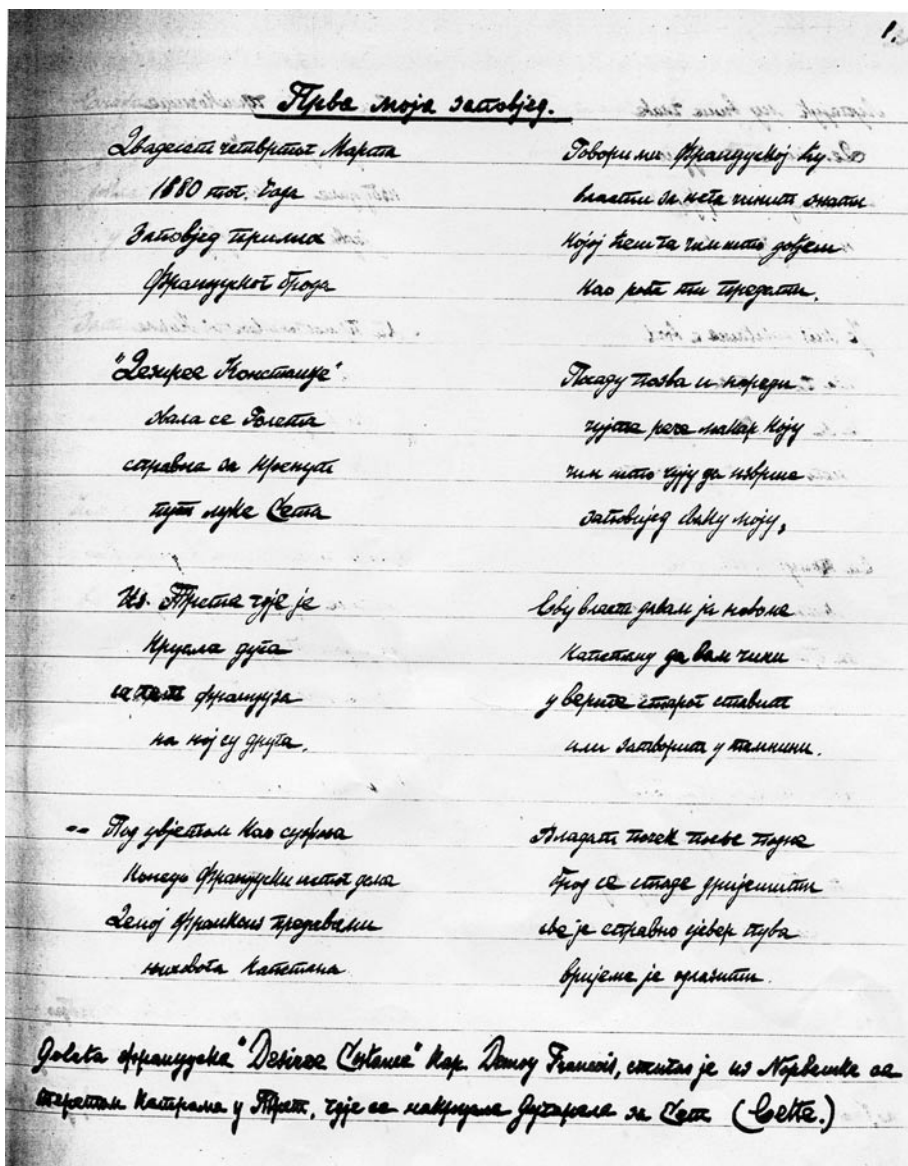 1.
Прва моја заповјед.
Двадесет четвртог Марта
1880 тог. Года
Заповјед примих
Француског брода
"Дезирее Констанце"
звала се Голета
справна за кренути
пут луке Сета
Из. Трста гдје је
Крцала дуга
са пет француза
на ној су друга.
-- Под увјетом као сужња
Конзул Француски истог дана
Демој Франксис предаде ми
њиховога Капетана
Говори ми Француској ћу
власти за њега чинит знати
којој ћеш га чим што дођем
као роба ти предати.
Посаду позва и нареди
чујте рече макар коју
чим што чују да изврше
заповијед сваку моју,
Сву власт давам ја новоме
капетану да вам чини
у вериге старог ставит
или затворит у тамнини.
Владат почек после подне
брод се стаде дријешити
све је справно сјевер пува
вријеме је одлазити.
Golata француска "Desiree Costance" Kap. Demoy Francois, стигао је из Норвешке са
теретом Катрама у Трст, гдје са накрцала Дугарела за Сет (Cette.)